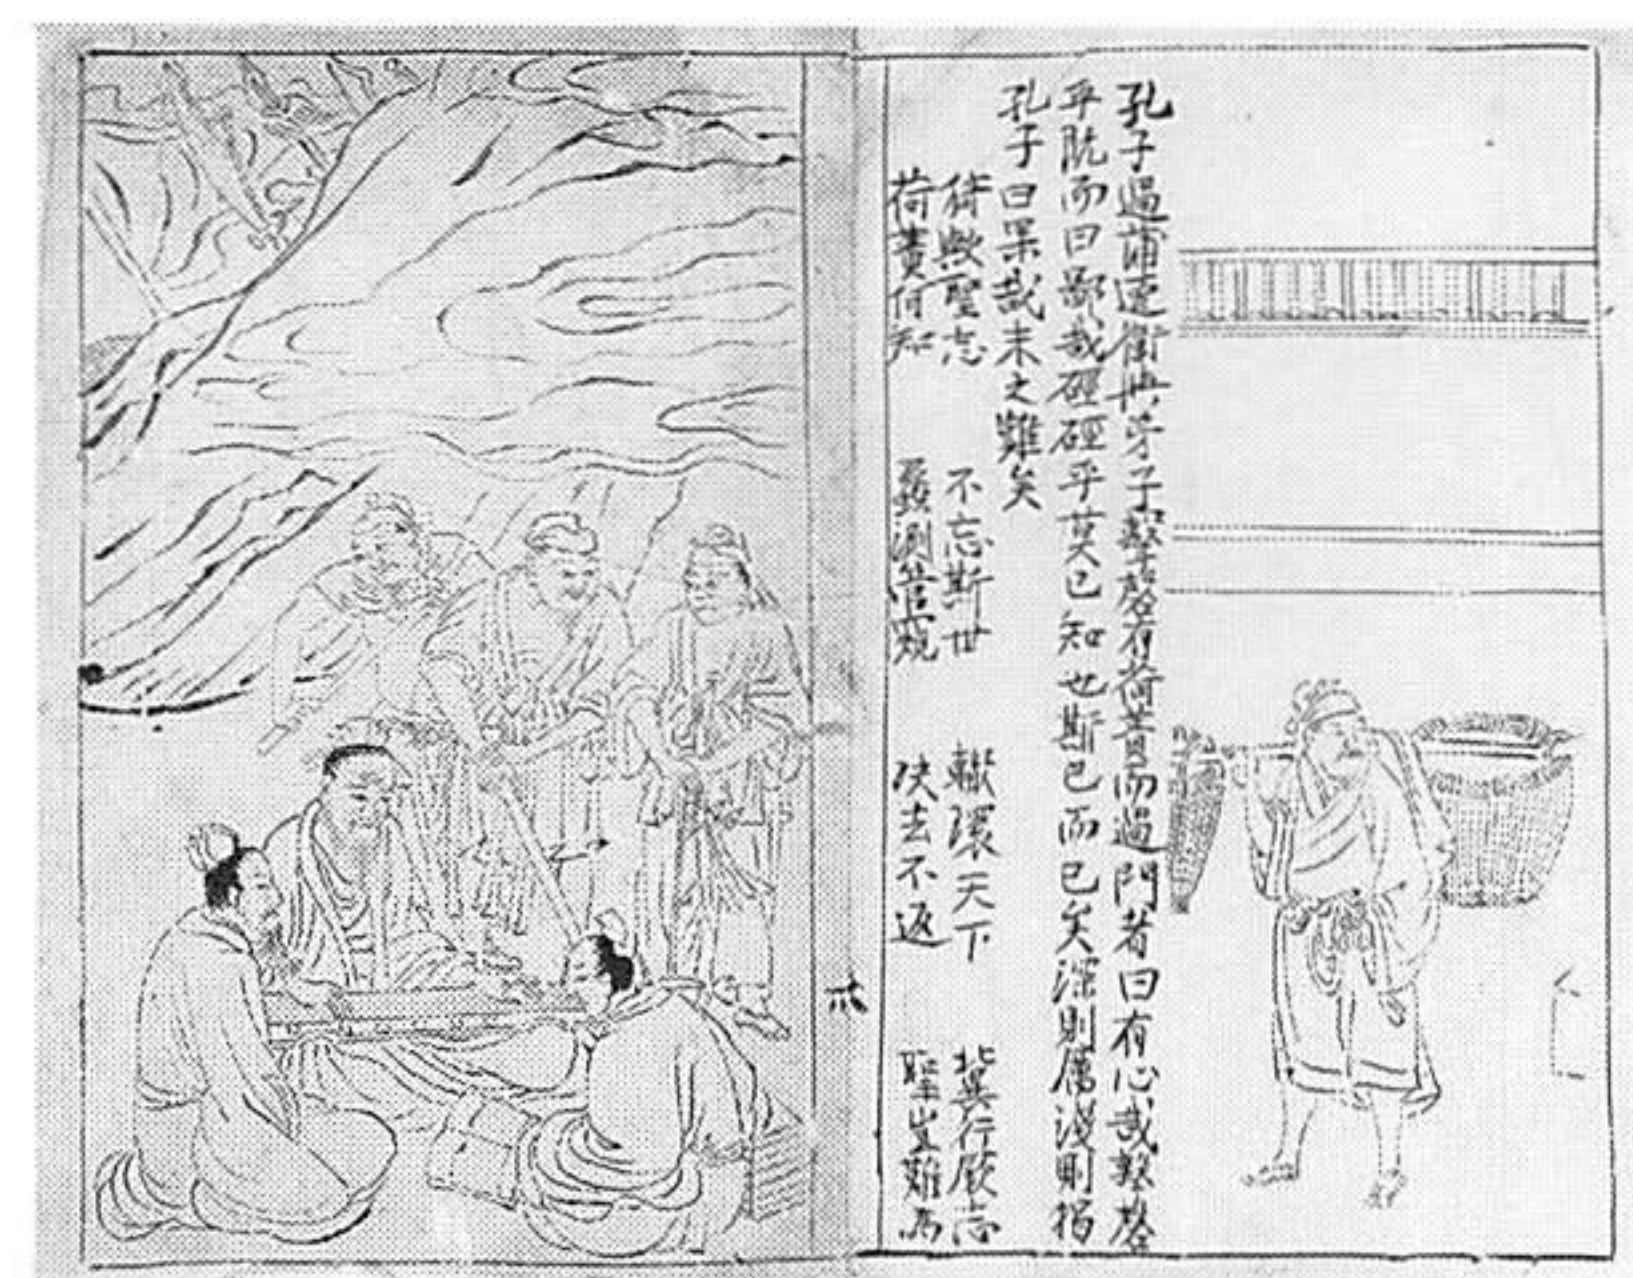 孔子過蒲還衛與弟子擊磬有荷蕢而過門者曰有心哉擊磬
乎既而曰鄙哉硜硜乎莫己知也斯已而已矣深則厲淺則揭
孔子曰果哉末之難矣
倚歟聖志 不忘斯世 轍環天下 冀行厥志
荷蕢何知 蠡測管窺 决去不返 聖豈難為